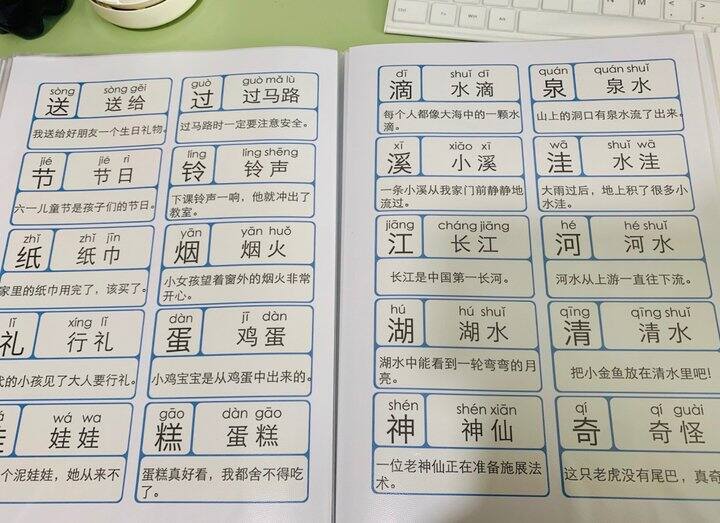 sòng sòng gěi
送 送给
我送给好朋友一个生日礼物。
guò guò mǎ lù
过 过马路
过马路时一定要注意安全。
jié jié rì
节 节日
六一儿童节是孩子们的节日。
líng líng shēng
铃 铃声
下课铃声一响，他就冲出了
教室。
zhǐ zhǐ jīn
纸 纸巾
家里的纸巾用完了，该买了。
yān yān huǒ
烟 烟火
小女孩望着窗外的烟火非常
开心。
lǐ xíng lǐ
礼 行礼
的小孩见了大人要行礼。
dàn jī dàn
蛋 鸡蛋
小鸡宝宝是从鸡蛋中出来的。
wá wa
娃娃
个泥娃娃，她从来不
gāo dàn gāo
糕 蛋糕
蛋糕真好看，我都舍不得吃
了。
dī shuǐ dī
滴 水滴
每个人都像大海中的一颗水
滴。
quán quán shuǐ
泉 泉水
山上的洞口有泉水流了出来。
xī xiǎo xī
溪 小溪
一条小溪从我家门前静静地
流过。
wā shuǐ wā
洼 水洼
大雨过后，地上积了很多小
水洼。
jiāng cháng jiāng
江 长江
长江是中国第一长河。
hé hé shuǐ
河 河水
河水从上游一直往下流。
hú hú shuǐ
湖 湖水
湖水中能看到一轮弯弯的月
亮。
qīng qīng shuǐ
清 清水
把小金鱼放在清水里吧!
shén shén xiān
神 神仙
一位老神仙正在准备施展法
术。
qí qí guài
奇 奇怪
这只老虎没有尾巴，真奇